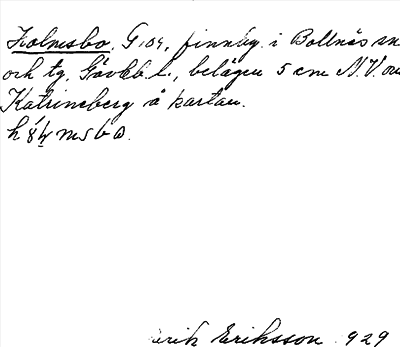 Holmsbo, G:og, finnbyg. i Bollnäs sn
och tg, Gävleb. l., belägen 5 cm N.V. om
Katrineberg å kartan.
Erik Eriksson 929